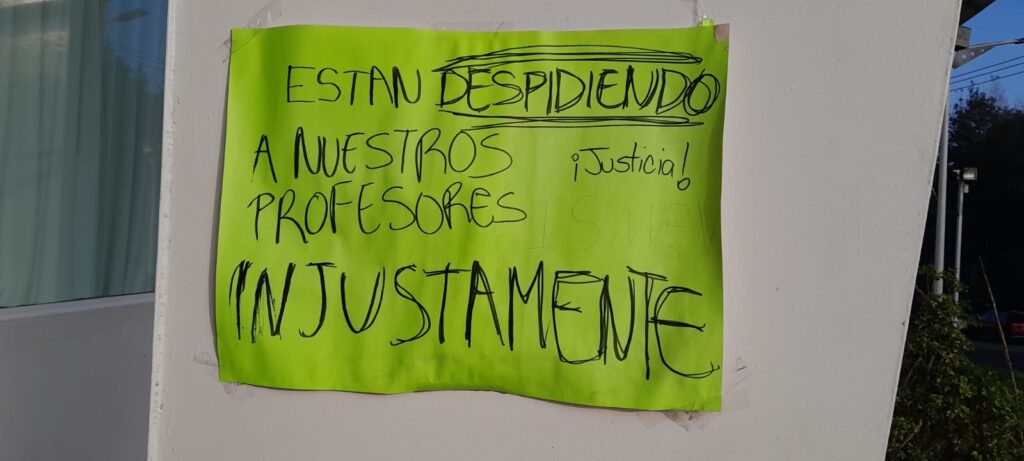 ESTAN DESPIDIENDO
A NUESTROS
¡Justicia!
PROFESORES
INJUSTAMENTE